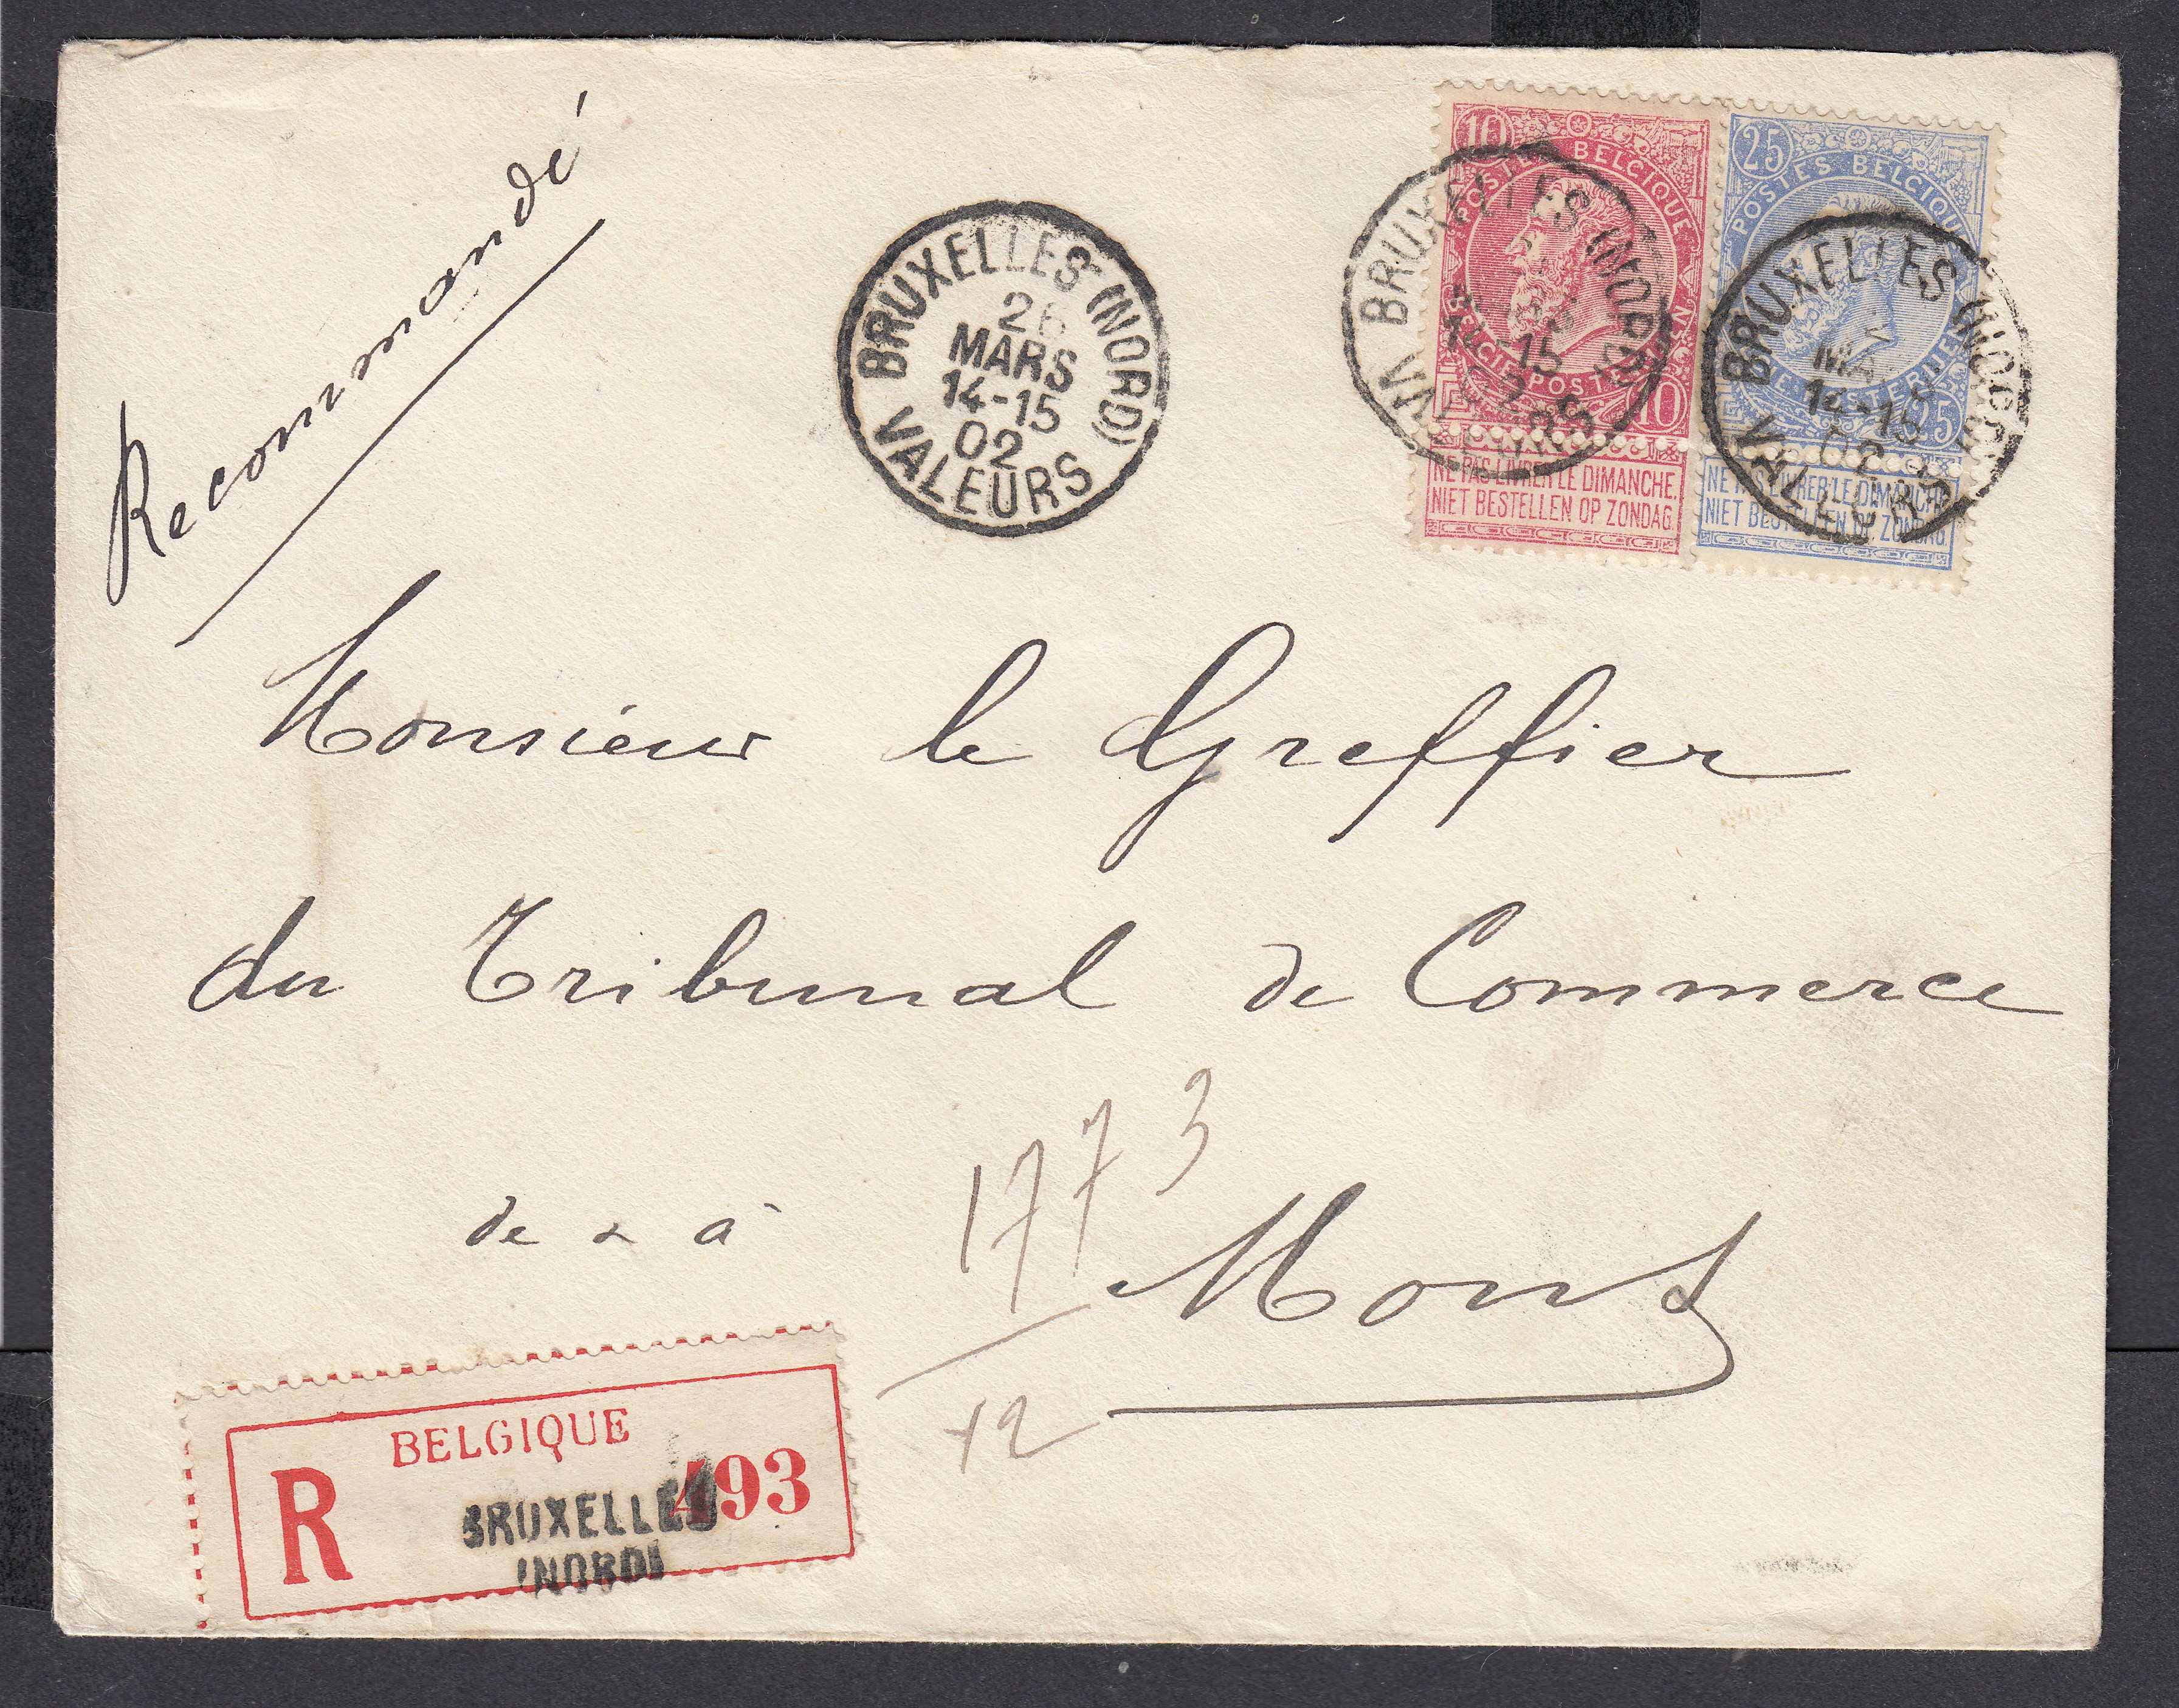 Recommandé
BRUXELLES (NORD)
26
MARS
14-15
02
VALEURS
10
POSTES BELGIQUE
BELGIE POSTERIJEN
10
NE PAS LIVRER LE DIMANCHE.
NIET BESTELLEN OP ZONDAG.
BRUXELLES (NORD)
14-15
02
VALEURS
25
POSTES BELGIQUE
BELGIE POSTERIJEN
25
NE PAS LIVRER LE DIMANCHE.
NIET BESTELLEN OP ZONDAG.
BRUXELLES (NORD)
14-15
02
VALEURS
Monsieur le Greffier
du Tribunal de Commerce
de & à
Mons
1773
12
BELGIQUE
R
493
BRUXELLES
(NORD)